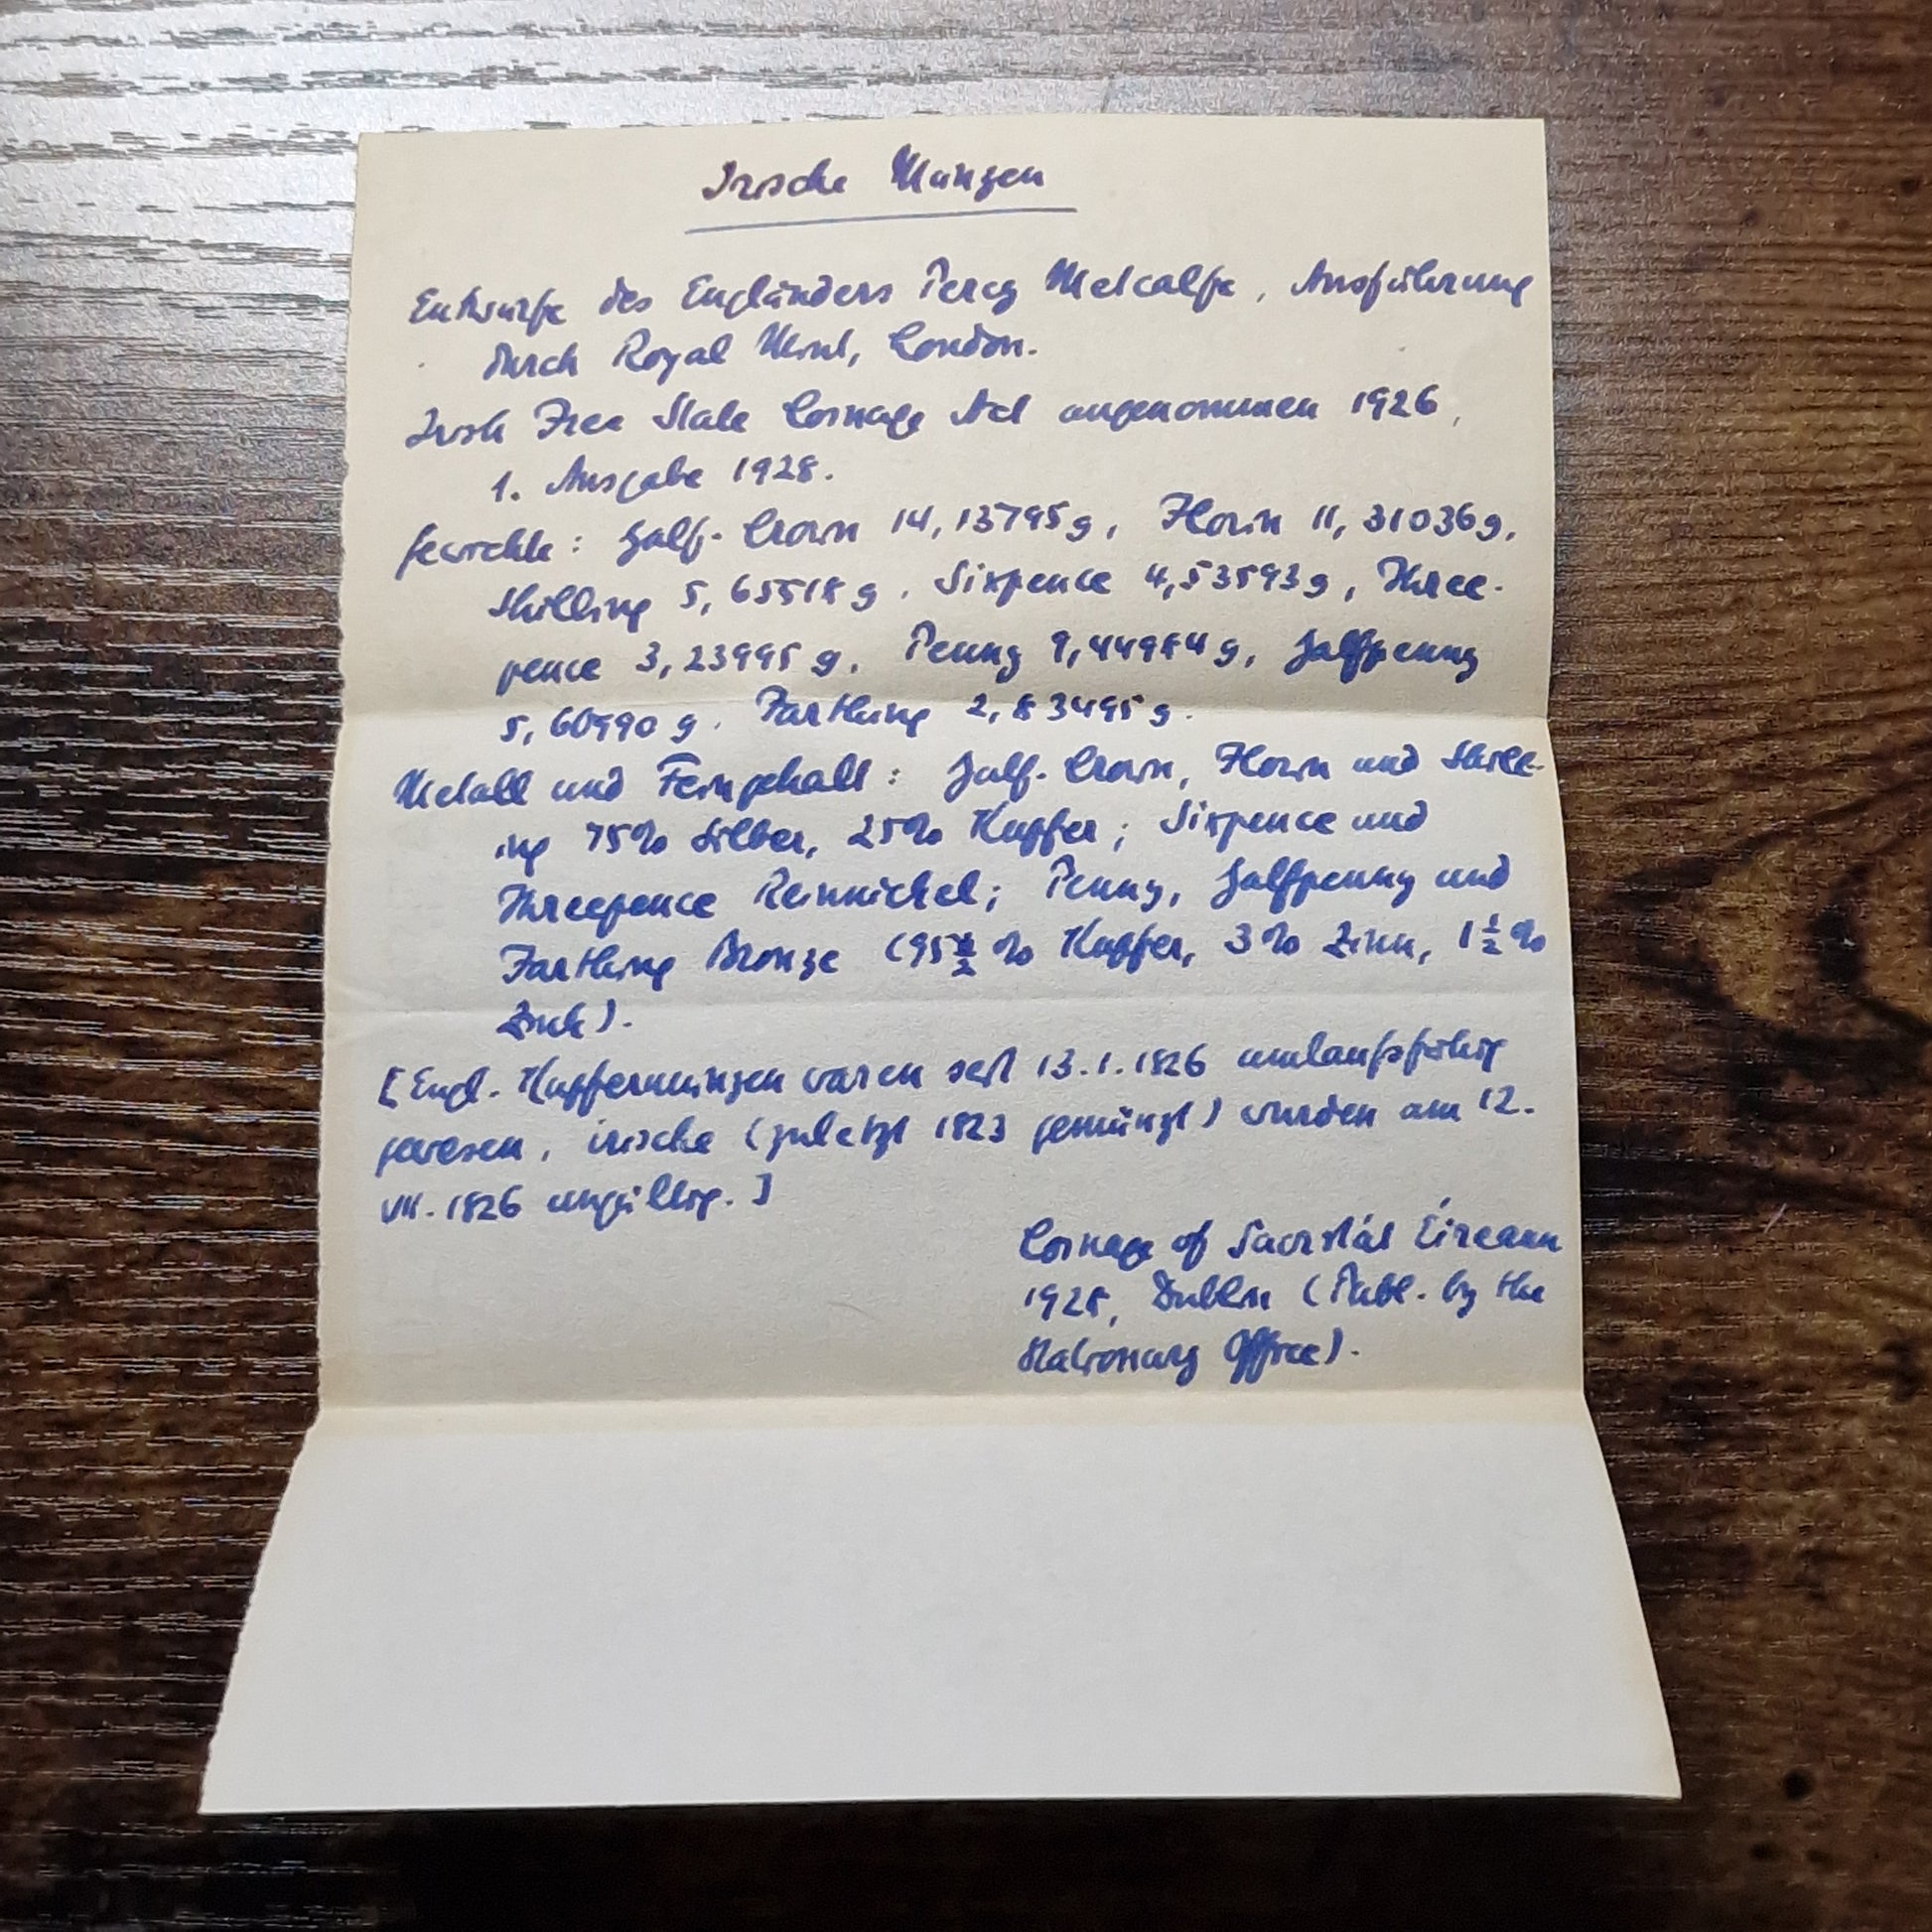 Irische Münzen
Entwürfe des Engländers Percy Metcalfe, Ausführung
durch Royal Mint, London.
Irish Free State Coinage Act angenommen 1926,
1. Ausgabe 1928.
Gewichte: Half-Crown 14,13795 g, Florin 11,31036 g,
Shilling 5,65518 g, Sixpence 4,53593 g, Three-
pence 3,23995 g, Penny 9,44984 g, Halfpenny
5,60990 g, Farthing 2,83495 g.
Metall und Feingehalt: Half-Crown, Florin und Shill-
ing 75% Silber, 25% Kupfer; Sixpence und
Threepence Reinnickel; Penny, Halfpenny und
Farthing Bronze (95½ % Kupfer, 3% Zinn, 1½ %
Zink).
[Engl. Kupfermünzen waren seit 13.1.1826 umlaufsfähig
gewesen, irische (zuletzt 1823 gemünzt) wurden am 12.
VII.1826 ungültig.]
Coinage of Saorstát Éireann
1928, Dublin (Publ. by the
Stationary Office).